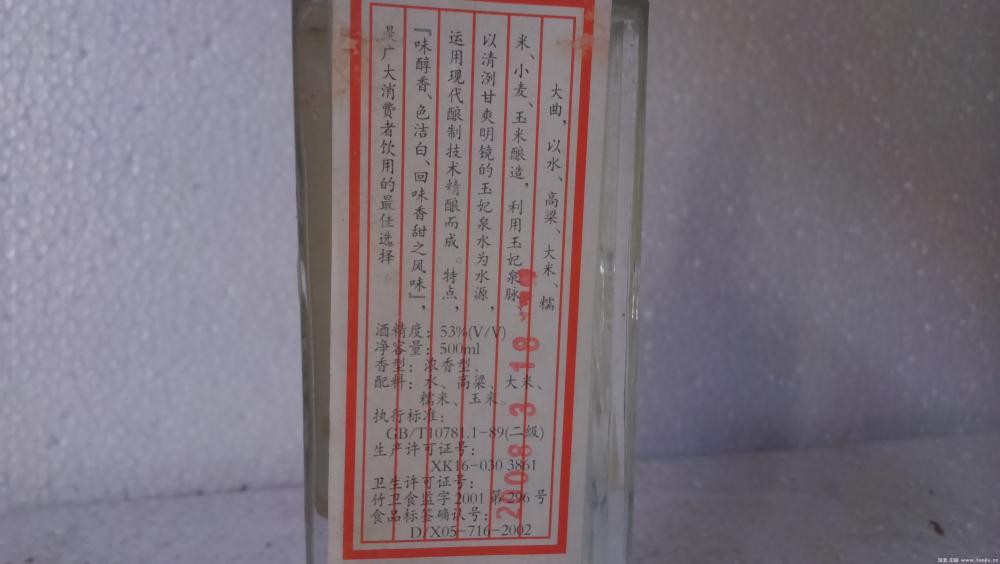 大曲，以水、高粱、大米、糯
米、小麦、玉米酿造，利用玉妃泉脉，
以清洌甘爽明镜的玉妃泉水为水源，
运用现代酿制技术精酿而成。特点，
『味醇香、色洁白、回味香甜之风味』，
是广大消费者饮用的最佳选择。
酒精度：53%(V/V)
净容量：500ml
香型：浓香型、
配料：水、高粱、大米、
糯米、玉米。
执行标准：
GB/T10781.1-89(二级)
生产许可证号：
XK16-030 3861
卫生许可证号：
竹卫食监字2001第296号
食品标签确认号：
D/X05-716-2002
2008 3 18